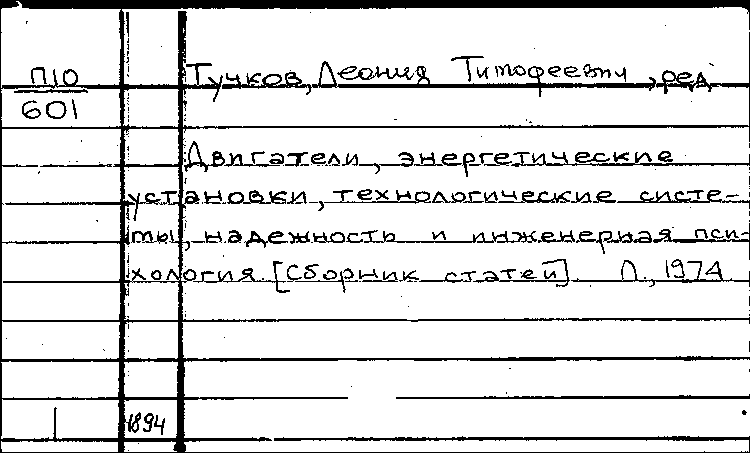 П10
601
Тучков, Леонид Тимофеевич, ред.
Двигатели, энергетические
установки, технологические систе-
мы, надежность и инженерная пси-
хология. [Сборник статей]. Л., 1974
1
1894